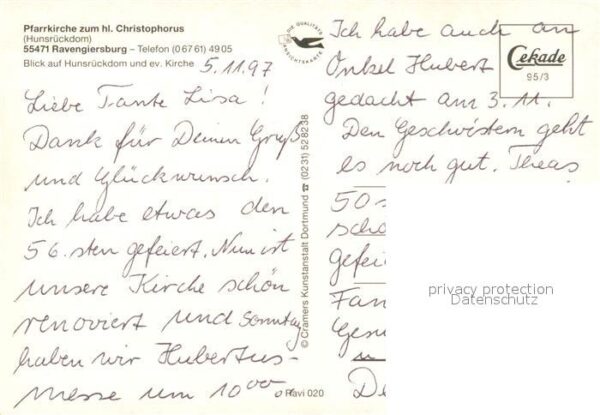 Pfarrkirche zum hl. Christophorus
(Hunsrückdom)
55471 Ravengiersburg – Telefon (0 67 61) 49 05
Blick auf Hunsrückdom und ev. Kirche
5.11.97
Liebe Tante Lisa!
Dank für Deinen Gruß
und Glückwunsch.
Ich habe etwas den
56.sten gefeiert. Nun ist
unsere Kirche schön
renoviert und Sonntag
haben wir Hubertus-
messe um 10⁰⁰.
DIE QUALITÄTS
ANSICHTSKARTE
© Cramers Kunstanstalt Dortmund ☎ (0231) 528238
Ravi 020
Cekade
95/3
Ich habe auch an
Onkel Hubert
gedacht am 3.11.
Den Geschwistern geht
es noch gut. Theas
50s
scho
gefei
Fan
Gesu
De
privacy protection
Datenschutz